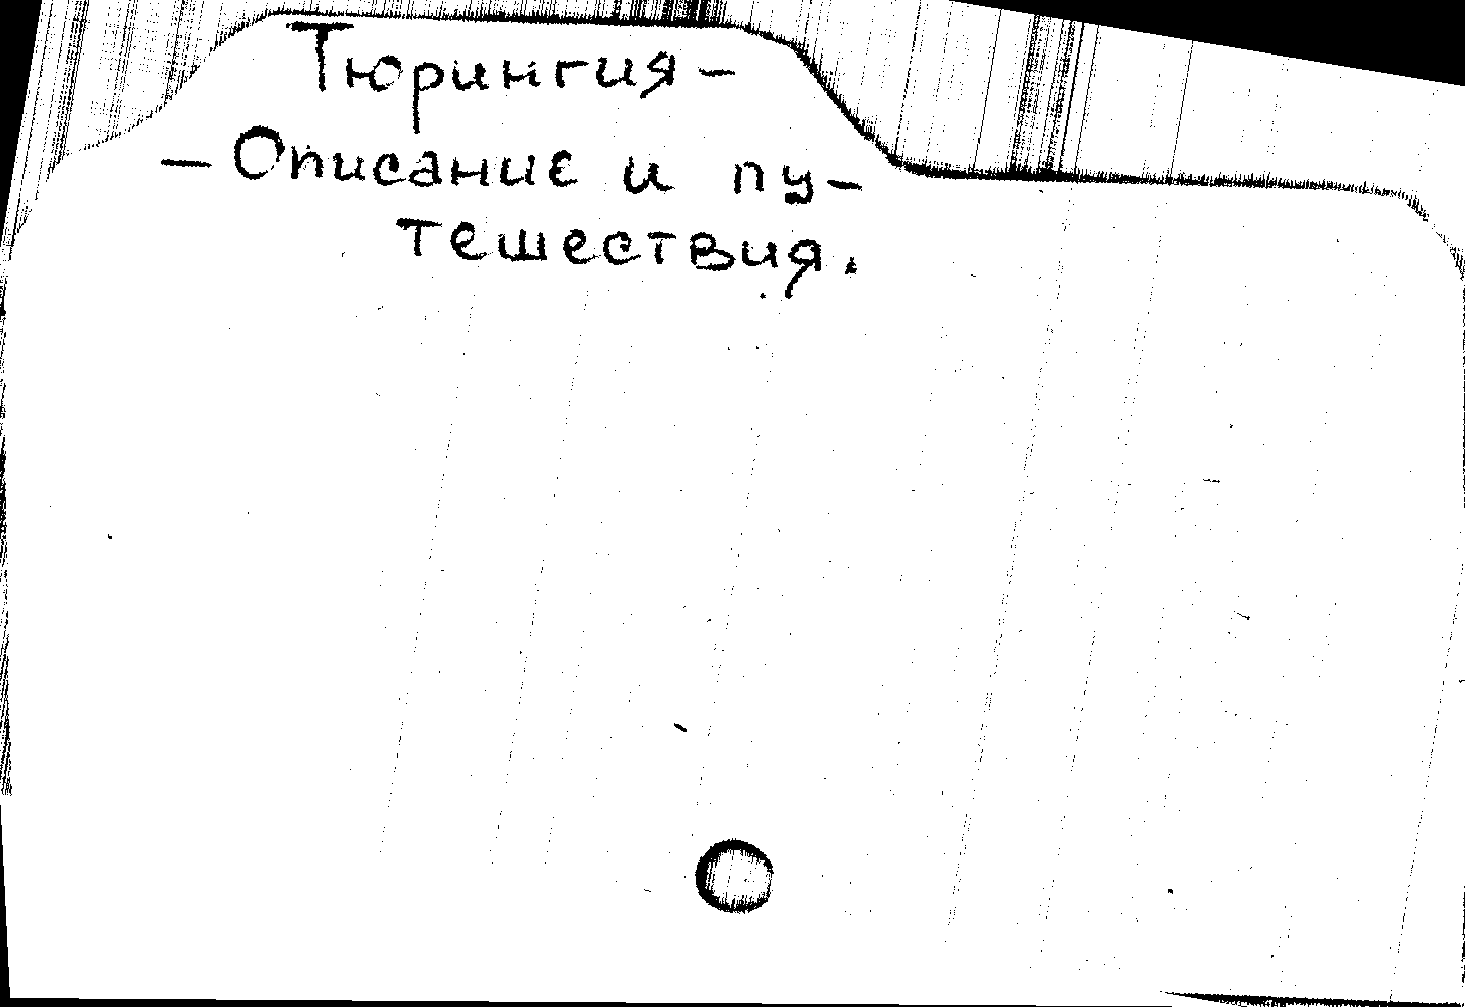 Тюрингия -
- Описание и пу-
тешествия.